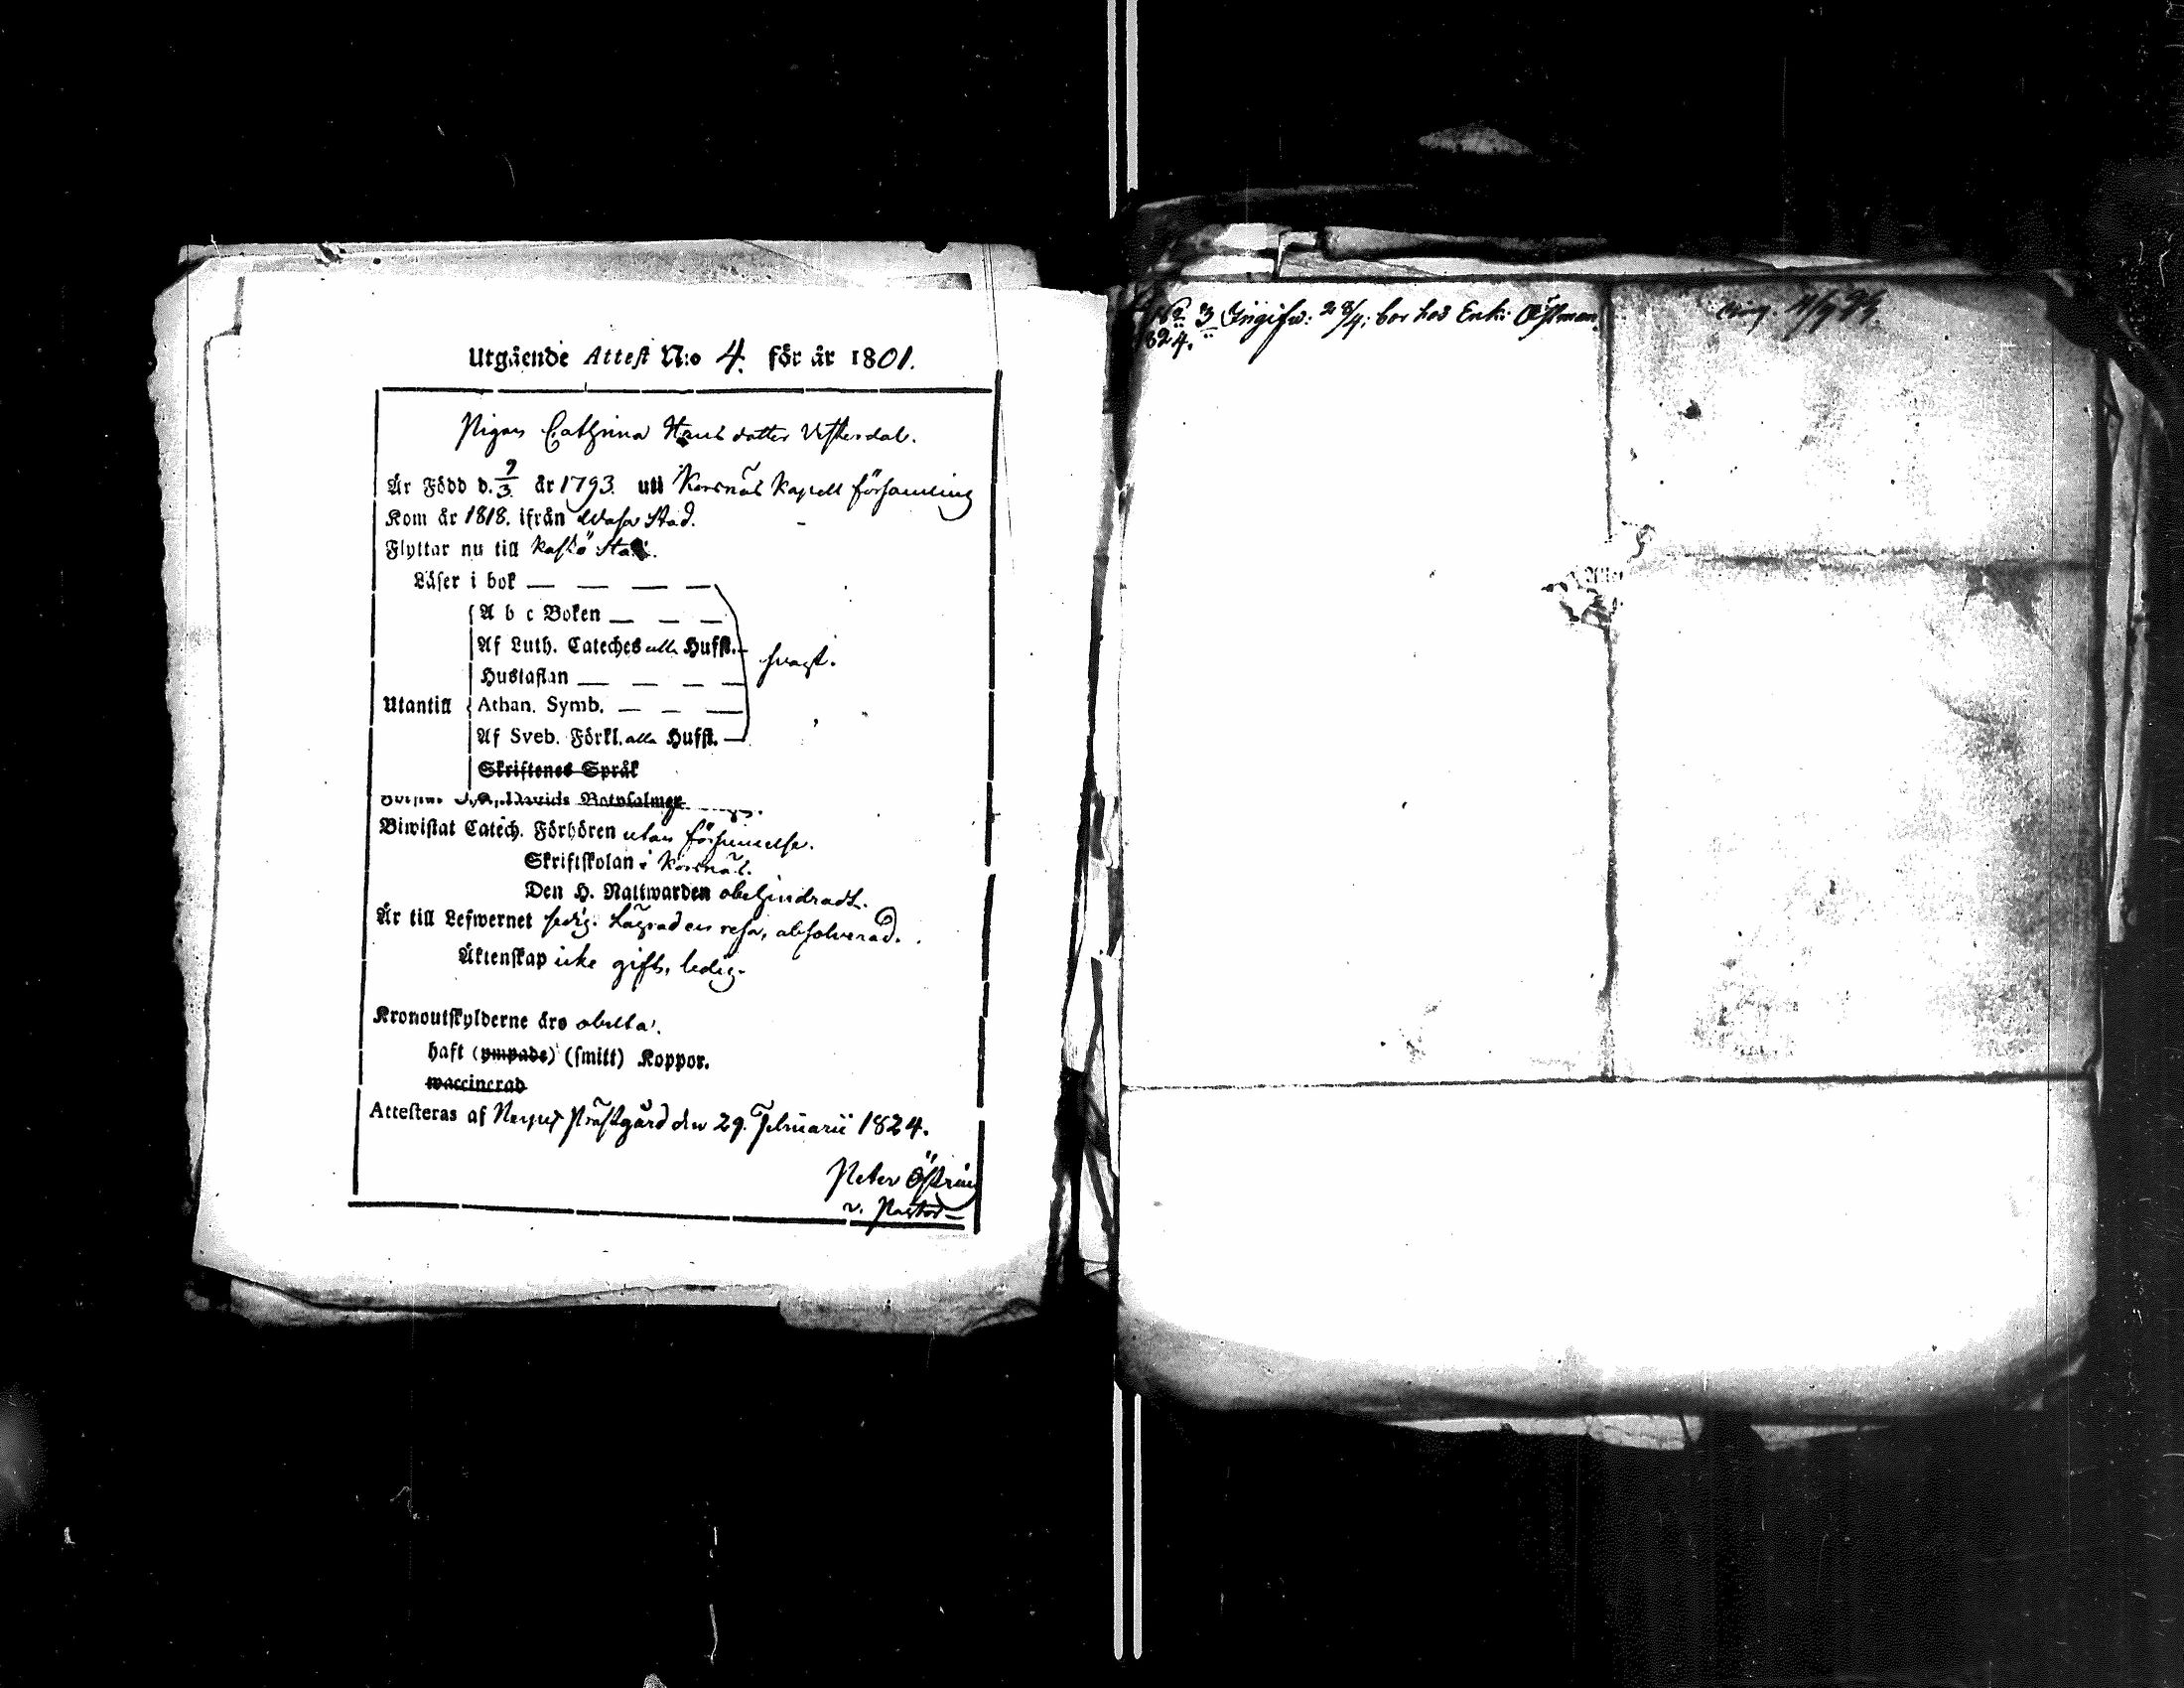 Utgående Attest N:o 4. för år 1801.
Pigan Cathrina Hansdotter Westerdal.
Är Född d. 9/3 år 1793. uti Korsnäs Kapell församling
Kom år 1818. ifrån Wasa Stad.
Flyttar nu till Kaskö Stad.
Läser i bok — — — —
A b c Boken — — —
Af Luth. Cateches alla Hufst. —
svagt.
Hustaflan — — — —
Utantill Athan. Symb. — — —
Af Sveb. Förkl. alla Hufst. —
Skriftenes Språk
Davids Botpsalmer
Biwistat Catech. Förhören utan försummelse.
Skriftskolan i Korsnäs.
Den H. Nattwarden obehindradt.
Är till Lefwernet sedig. Lägrad en resa, absolverad.
Äktenskap icke gift, ledig.
Kronoutskylderne äro
haft (ympade) (smitt) Koppor.
waccinerad
Attesteras af Prästgård den 29. Februarii 1824.
Peter
v. Pastor
No 3 Ingifw: 28/4; bor hos Enk: Östman.
1824.